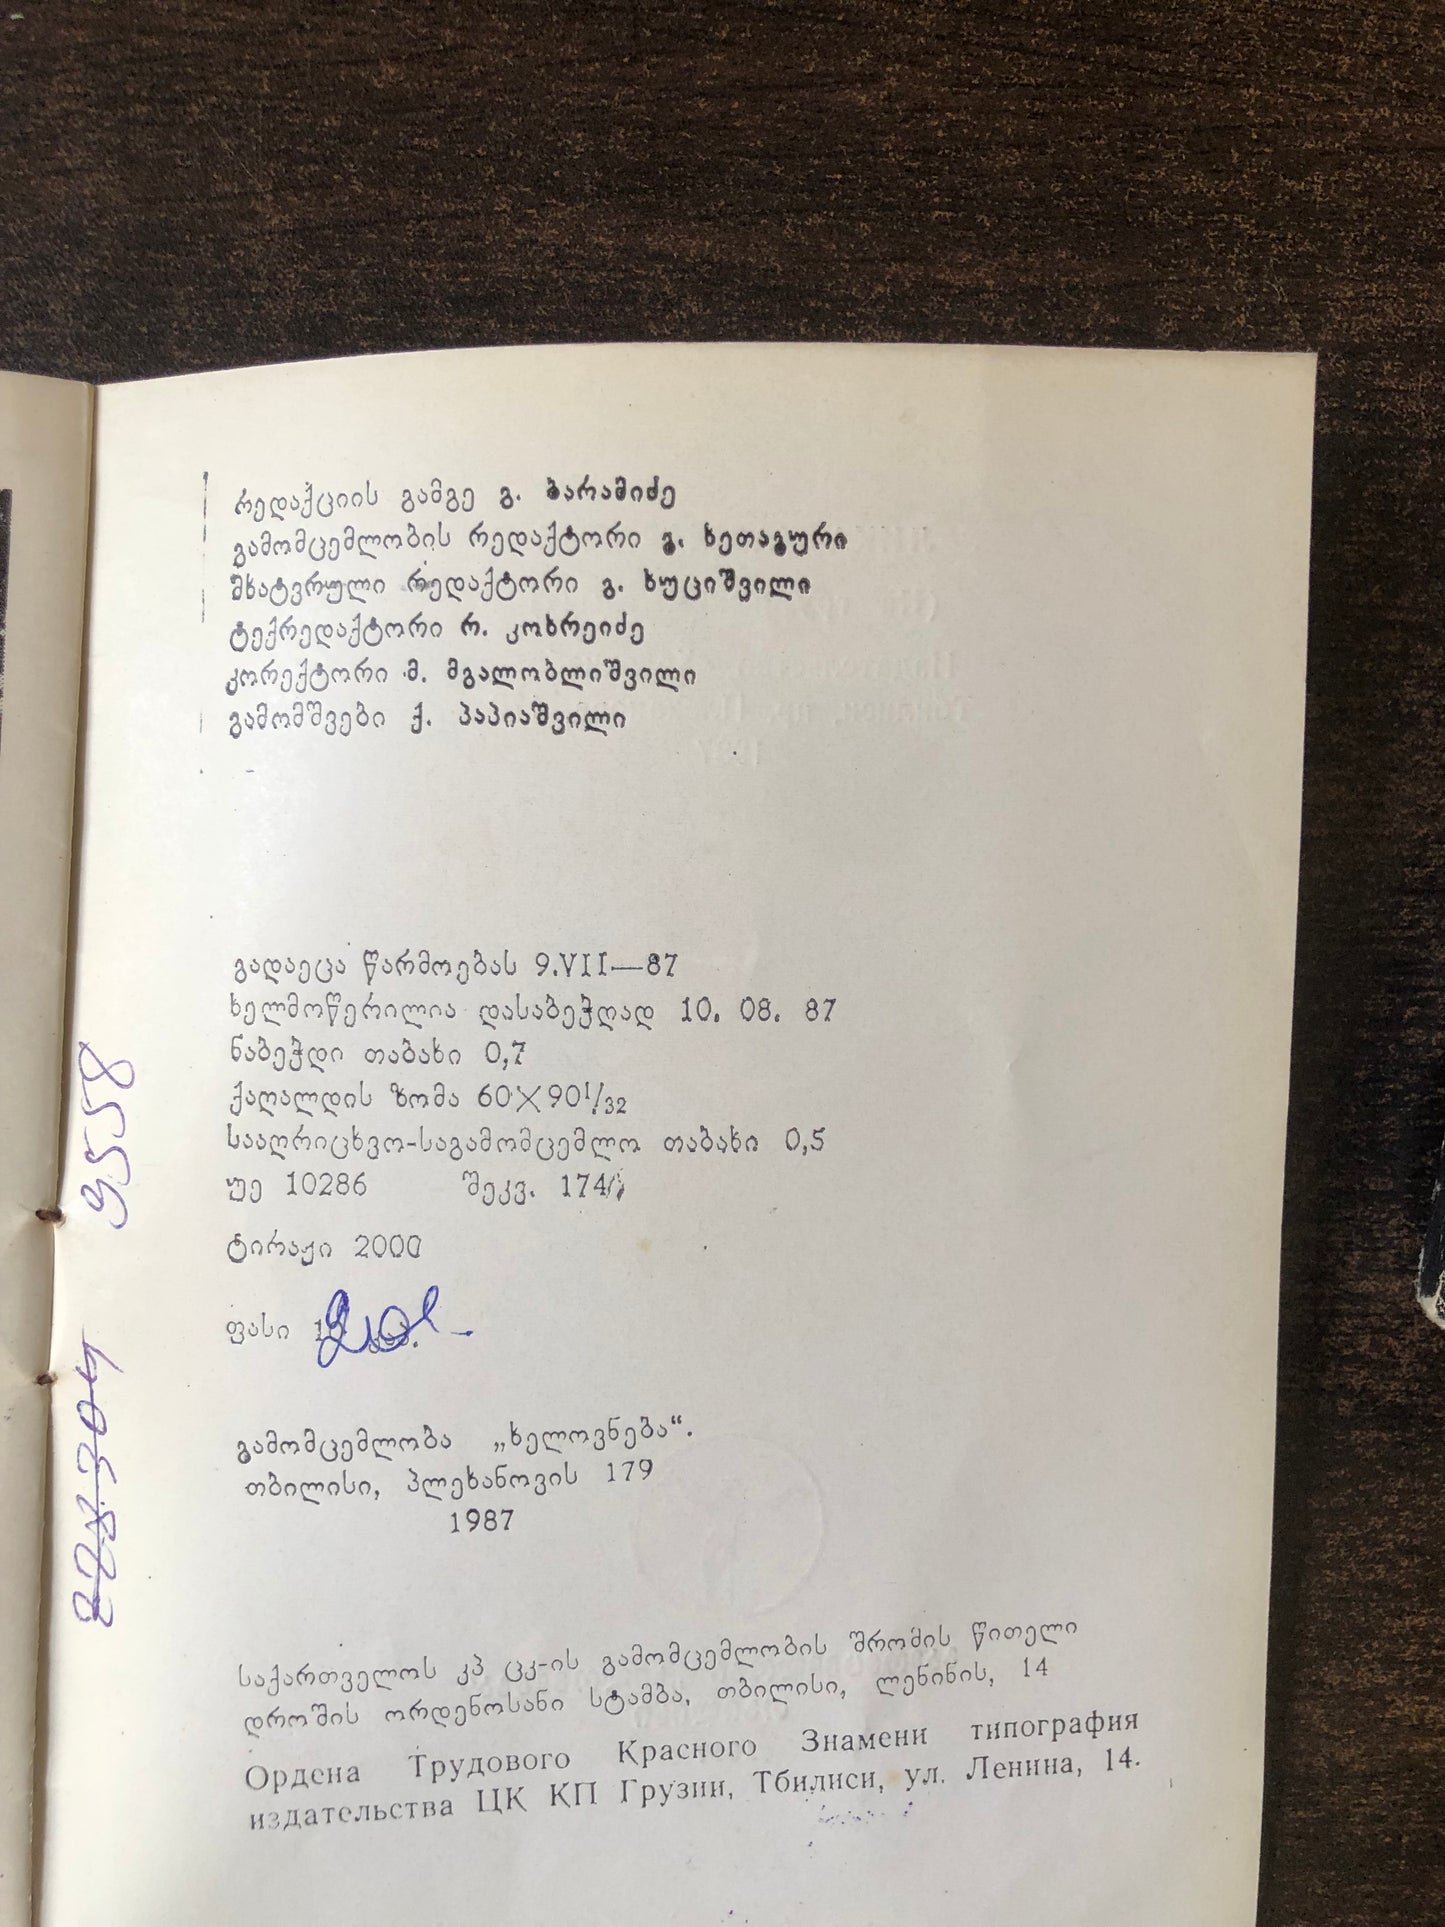 რედაქციის გამგე გ. ბარამიძე
გამომცემლობის რედაქტორი გ. ხეთაგური
მხატვრული რედაქტორი გ. ხუციშვილი
ტექრედაქტორი რ. კოხრეიძე
კორექტორი მ. მგალობლიშვილი
გამომშვები ქ. პაპიაშვილი
გადაეცა წარმოებას 9.VII—87
ხელმოწერილია დასაბეჭდად 10. 08. 87
ნაბეჭდი თაბახი 0,7
ქაღალდის ზომა 60×90 1/32
სააღრიცხვო-საგამომცემლო თაბახი 0,5
უე 10286 შეკვ.
ტირაჟი 2000
ფასი
გამომცემლობა „ხელოვნება“.
თბილისი, პლეხანოვის 179
1987
საქართველოს კპ ცკ-ის გამომცემლობის შრომის წითელი
დროშის ორდენოსანი სტამბა, თბილისი, ლენინის, 14
Ордена Трудового Красного Знамени типография
издательства ЦК КП Грузии, Тбилиси, ул. Ленина, 14.
9558